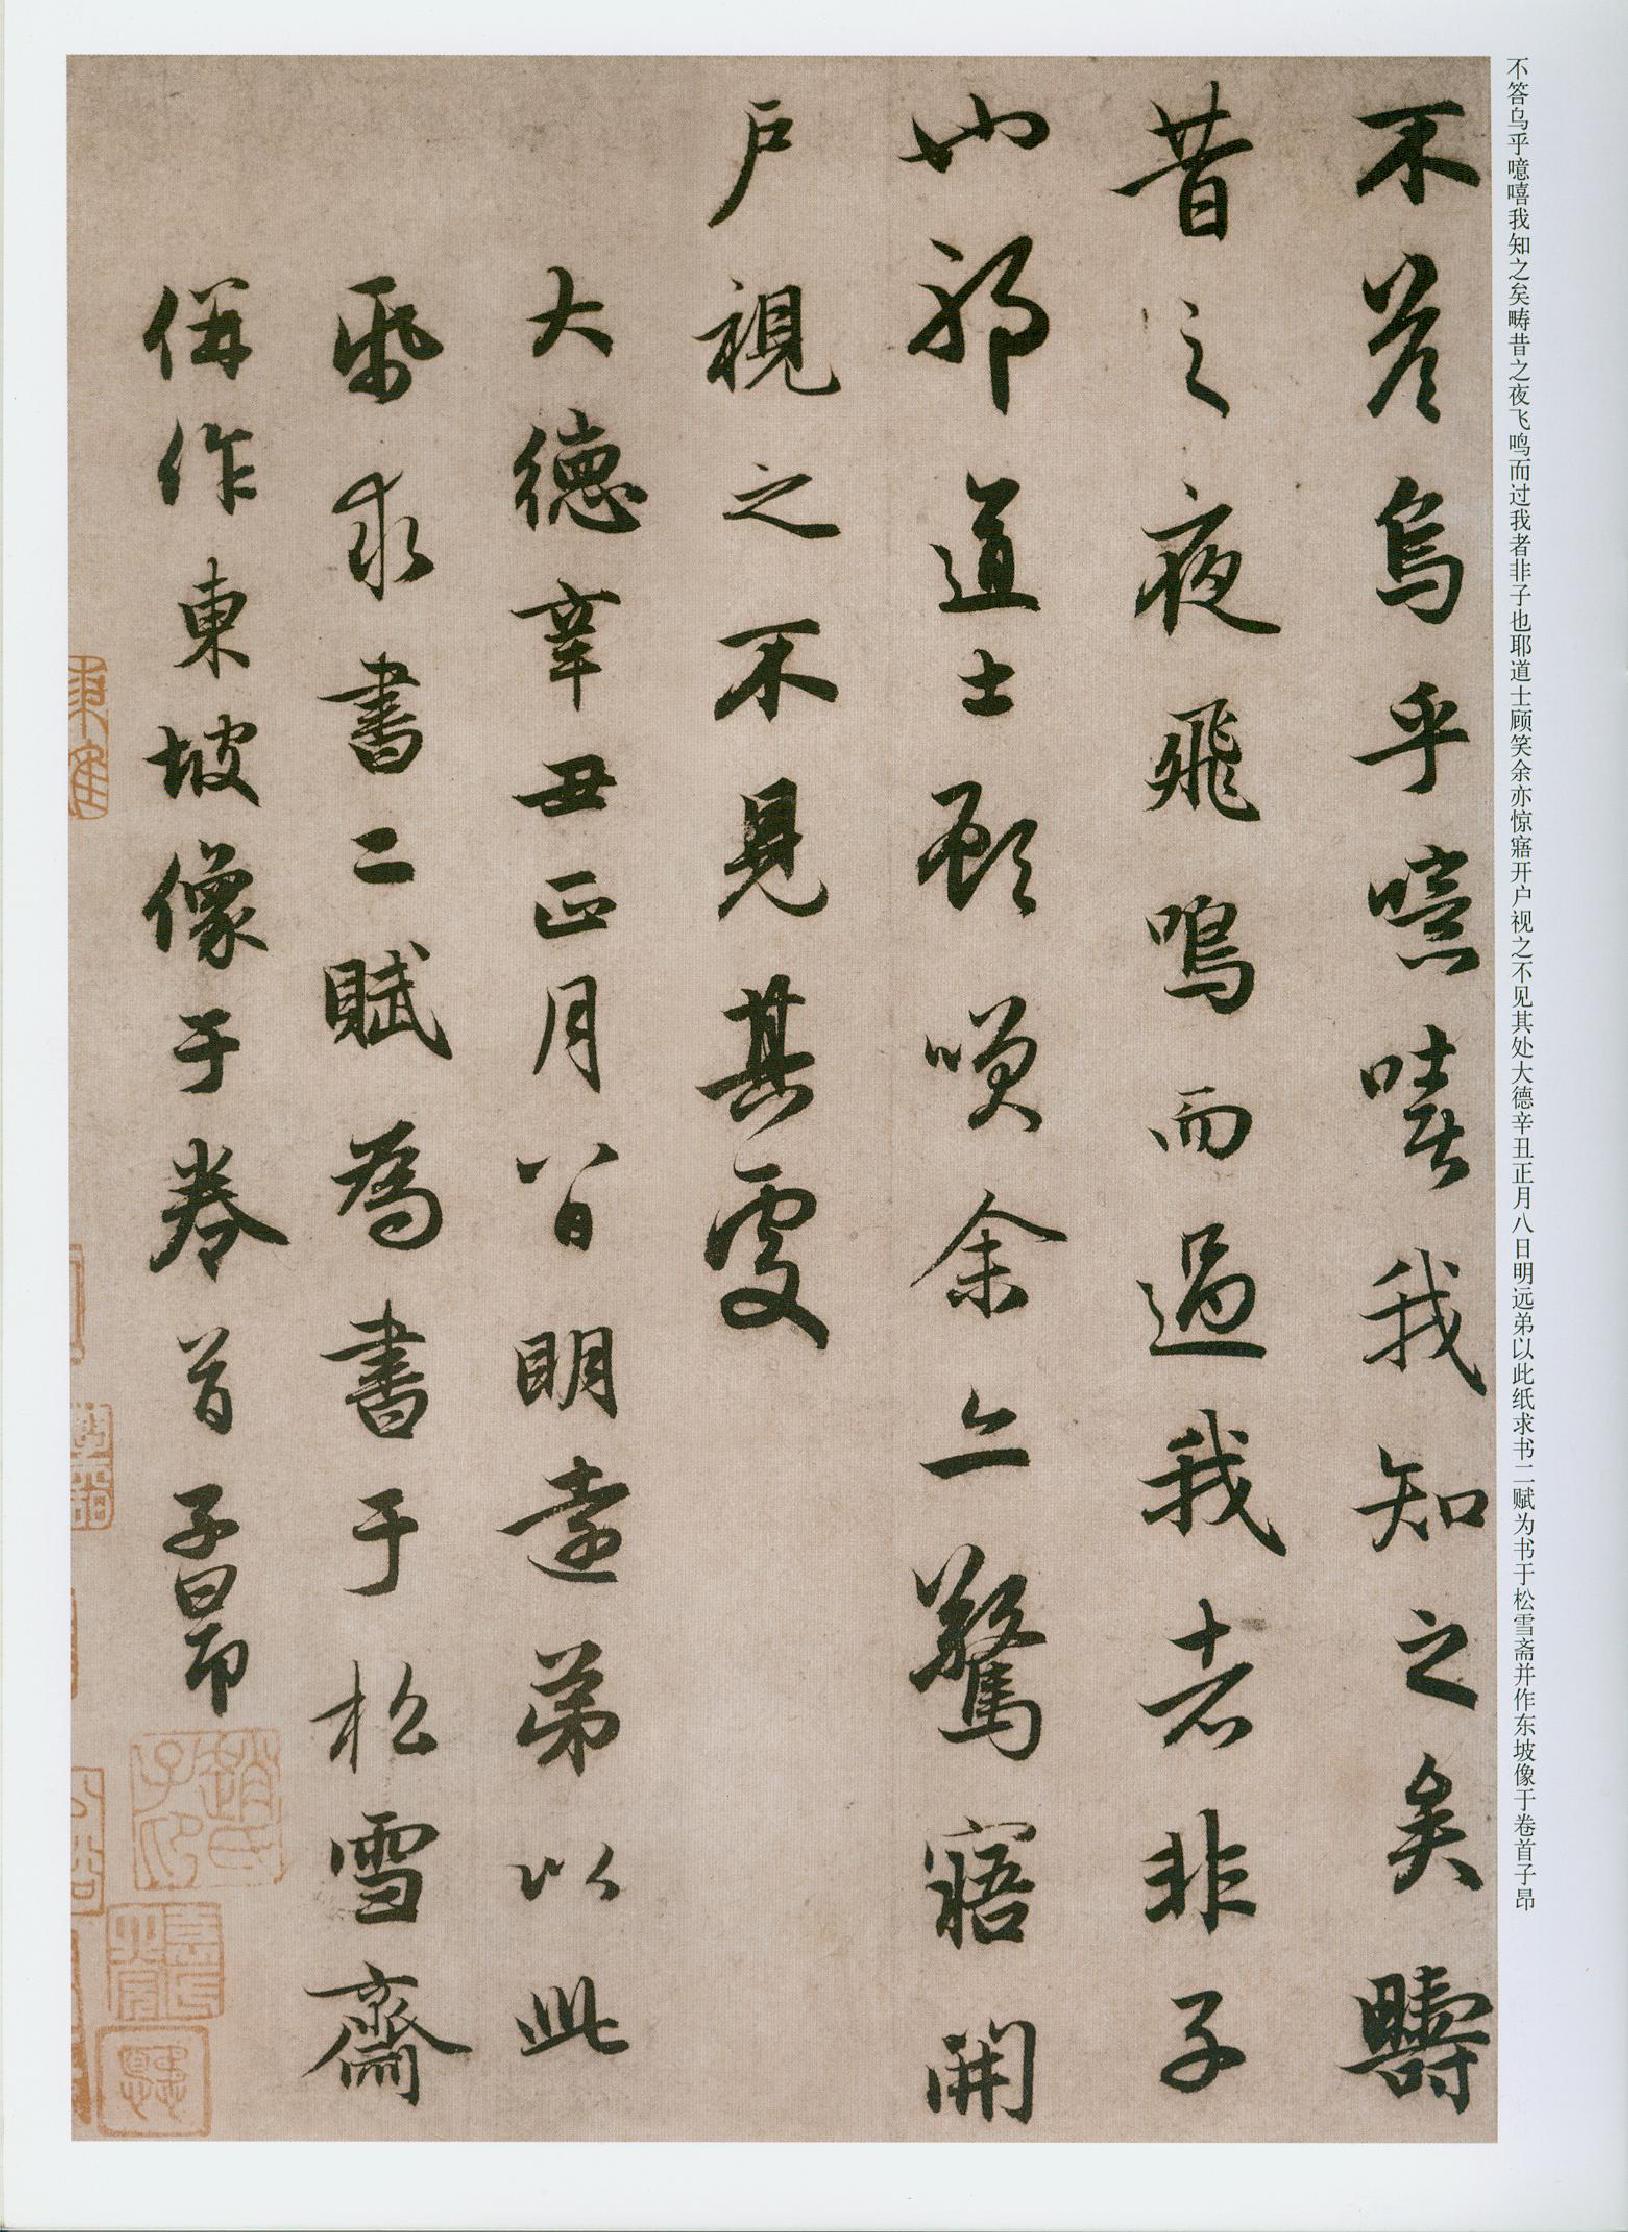 不答烏乎噫嘻我知之矣疇
昔之夜飛鳴而過我者非子
也耶道士顧咲余亦驚寤開
戶視之不見其處
大德辛丑正月八日明遠弟以此
帋求書二賦為書于松雪齋
併作東坡像于卷首子昂
趙氏子昂
不答乌乎噫嘻我知之矣畴昔之夜飞鸣而过我者非子也耶道士顾笑余亦惊寤开户视之不见其处大德辛丑正月八日明远弟以此纸求书二赋为书于松雪斋并作东坡像于卷首子昂